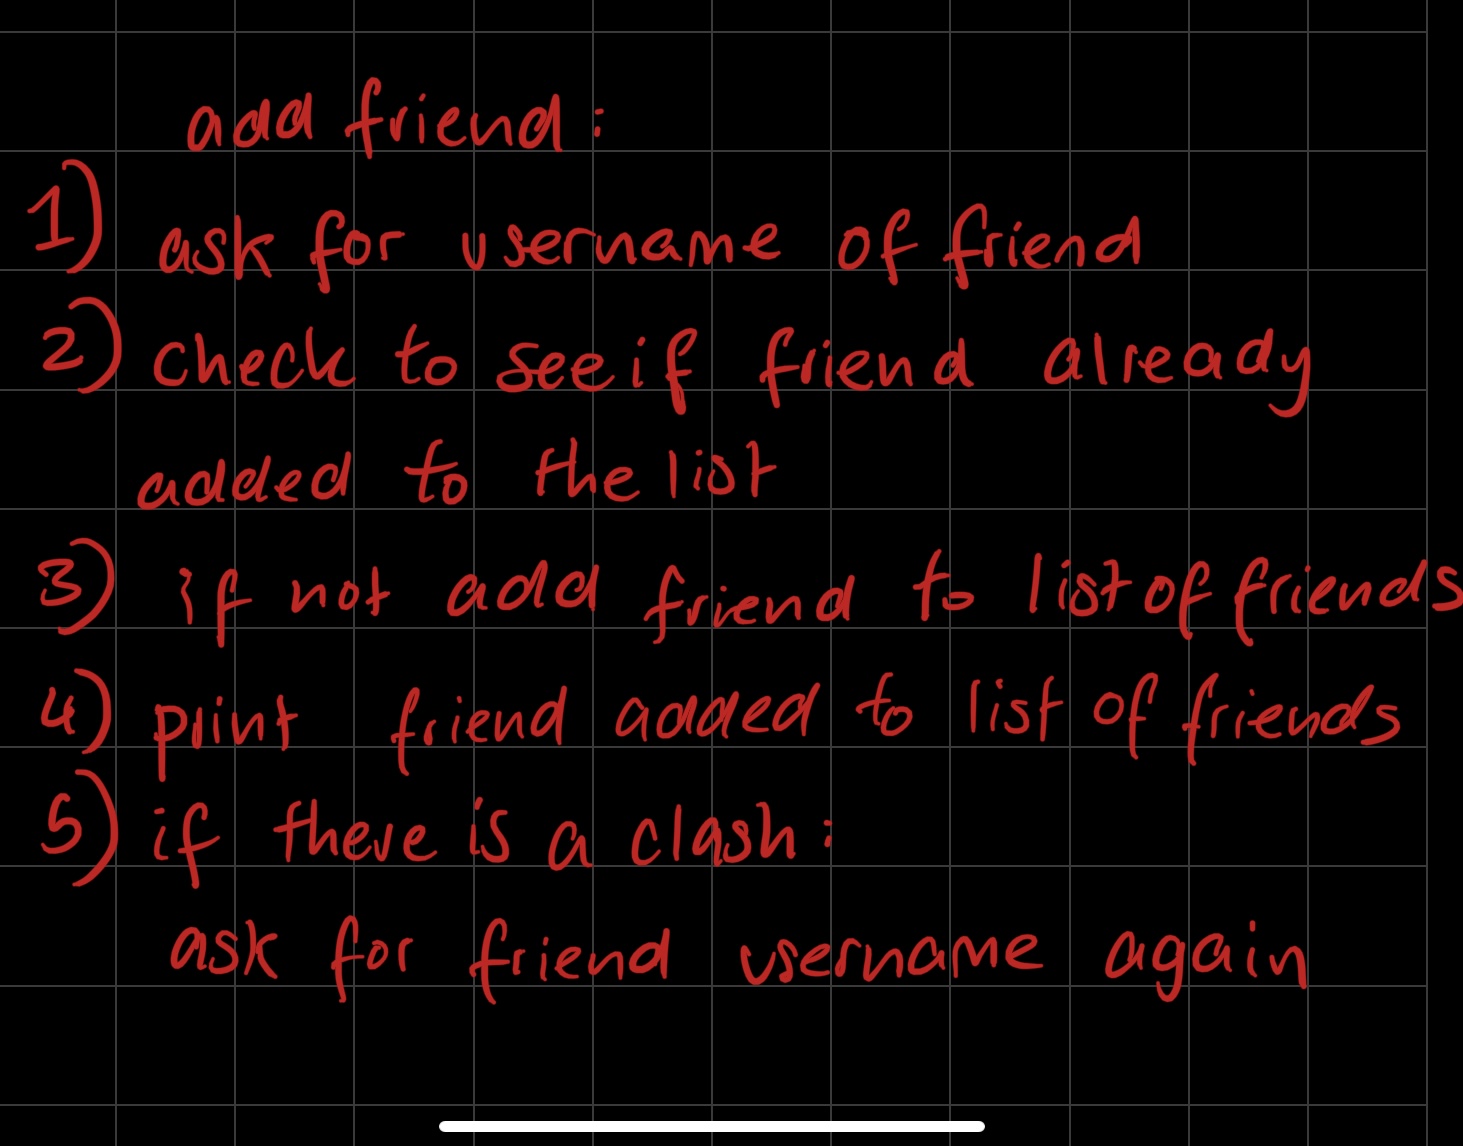 add friend:
1) ask for username of friend
2) check to see if friend already
added to the list
3) if not add friend to list of friends
4) print friend added to list of friends
5) if there is a clash:
ask for friend username again